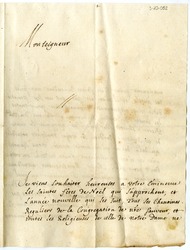 Monseigneur
Je viens souhaiter heureuses a votre Eminence
les saintes fêtes de Noël qui s'approchent, et
l'année nouvelle qui les suit. Tous les Chanoines
Reguliers de la Congregation de nôtre Sauveur et
toutes les Religieuses de celle de notre Dame ne